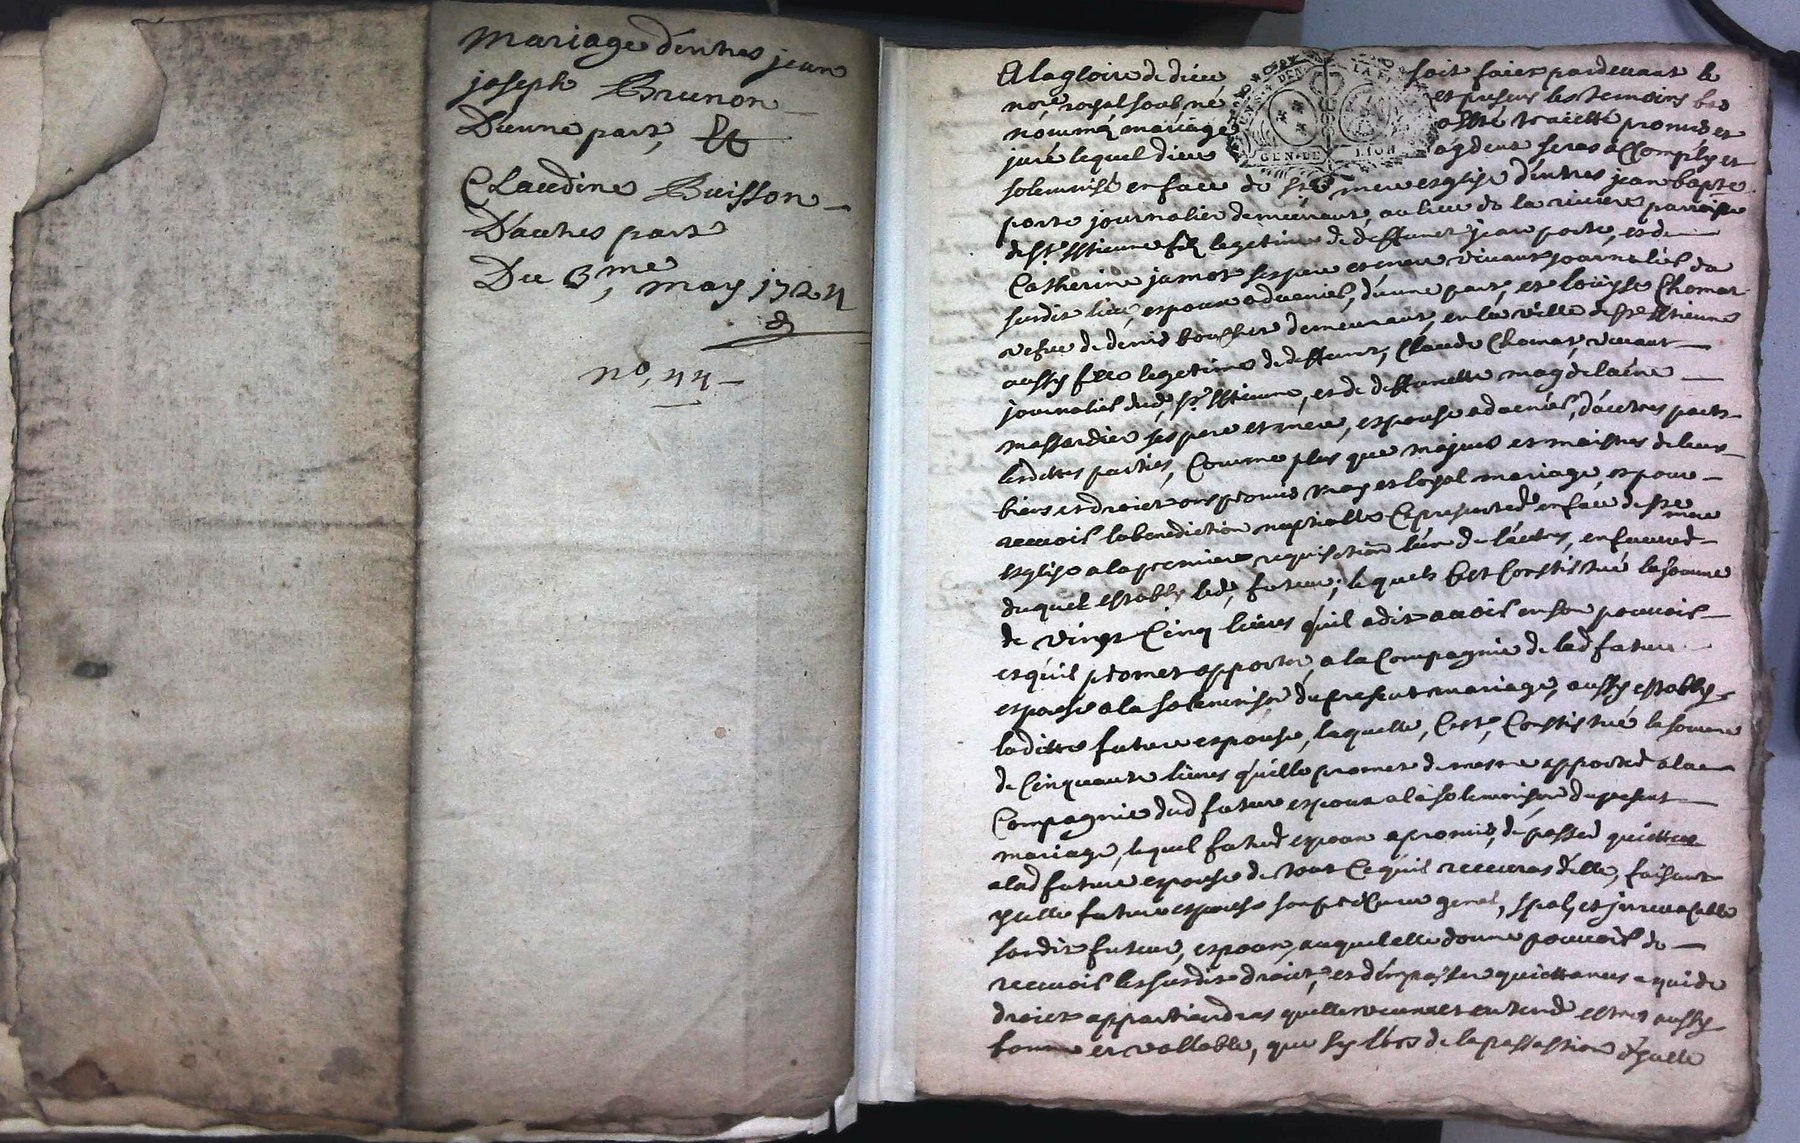 mariage d'entres jean
joseph Brunon
D'eune part, Et
Claudine Buisson
D'autres part
Du 3me, may 1724
no, 44
A la gloire de dieu soit faict pardevant le
nore royal soubné et presens les temoins bas
nommés mariage a esté traicté promis et
juré lequel dieu aydent seras accomply et
solemnisé en face de ste mere esglise d'entres jean bapte
porte journalier demeurant au lieu de la riviere parroisse
de st Estienne fils legetime de deffunct jean porte, et de
Catherine jamot ses pere et mere vivant journalier du
susdit lieu, espoux advenir, d'eune part, et loüise Chomat
vefve de denis boucher demeurant en la ville de st Estienne
aussy fille legetime de deffunct, Claude Chomat, vivant
journalier dud, st Estienne, et de deffuncte magdelaine
massardier ses pere et mere, espouse advenir, d'autres part
lesdittes parties, Comme plus que majeurs et maistres de leurs
biens et droict ont promis vray et loyal mariage, et pour
recevoir la benediction nuptialle se presenter en face de ste mere
esglise a la premiere requisition l'un de l'autres, en faveur
duquel estably led, futeur, lequel s'est Constistué la somme
de vingt Cinq livres qu'il a dit avoir en son pouvoir
et qu'il promet apporter, a la Compagnie de lad future
espouse a la solemnison du present mariage, aussy estably
laditte future espouse, laquelle, s'est, Constistué la somme
de Cinquante livres qu'elle promet de mesme apporter a la
Compagnie dud futur espoux a la solemnison du present
mariage, lequel futur espoux a promis, de passer quittance
a lad future espouse de tout Ce qu'il receuvras d'elle, faisant
ycelle future espouse son procureur genal, spal, et jrrevocable
sondit futeur, espoux, auquel elle donne pouvoir de
recevoir les susdits droict, et d'en passer quittances a qui de
droict appartiendras qu'elle veut et entend estres aussy
bonne et vallable, que sy lors de la passassion d'ycelle